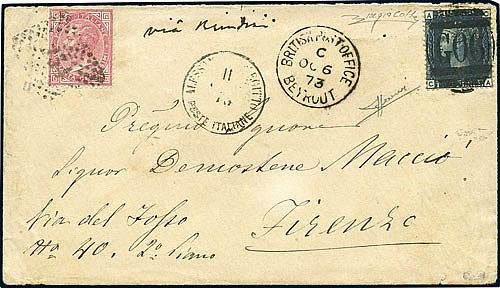 via Brindisi
BRITISH POST OFFICE
C
OC 6
73
BEYROUT
11
POSTE ITALIANE
G06
Pregmo Signore
Signor Demostene Macciò
Via del Fosso
No 40. 2o Piano
Firenze